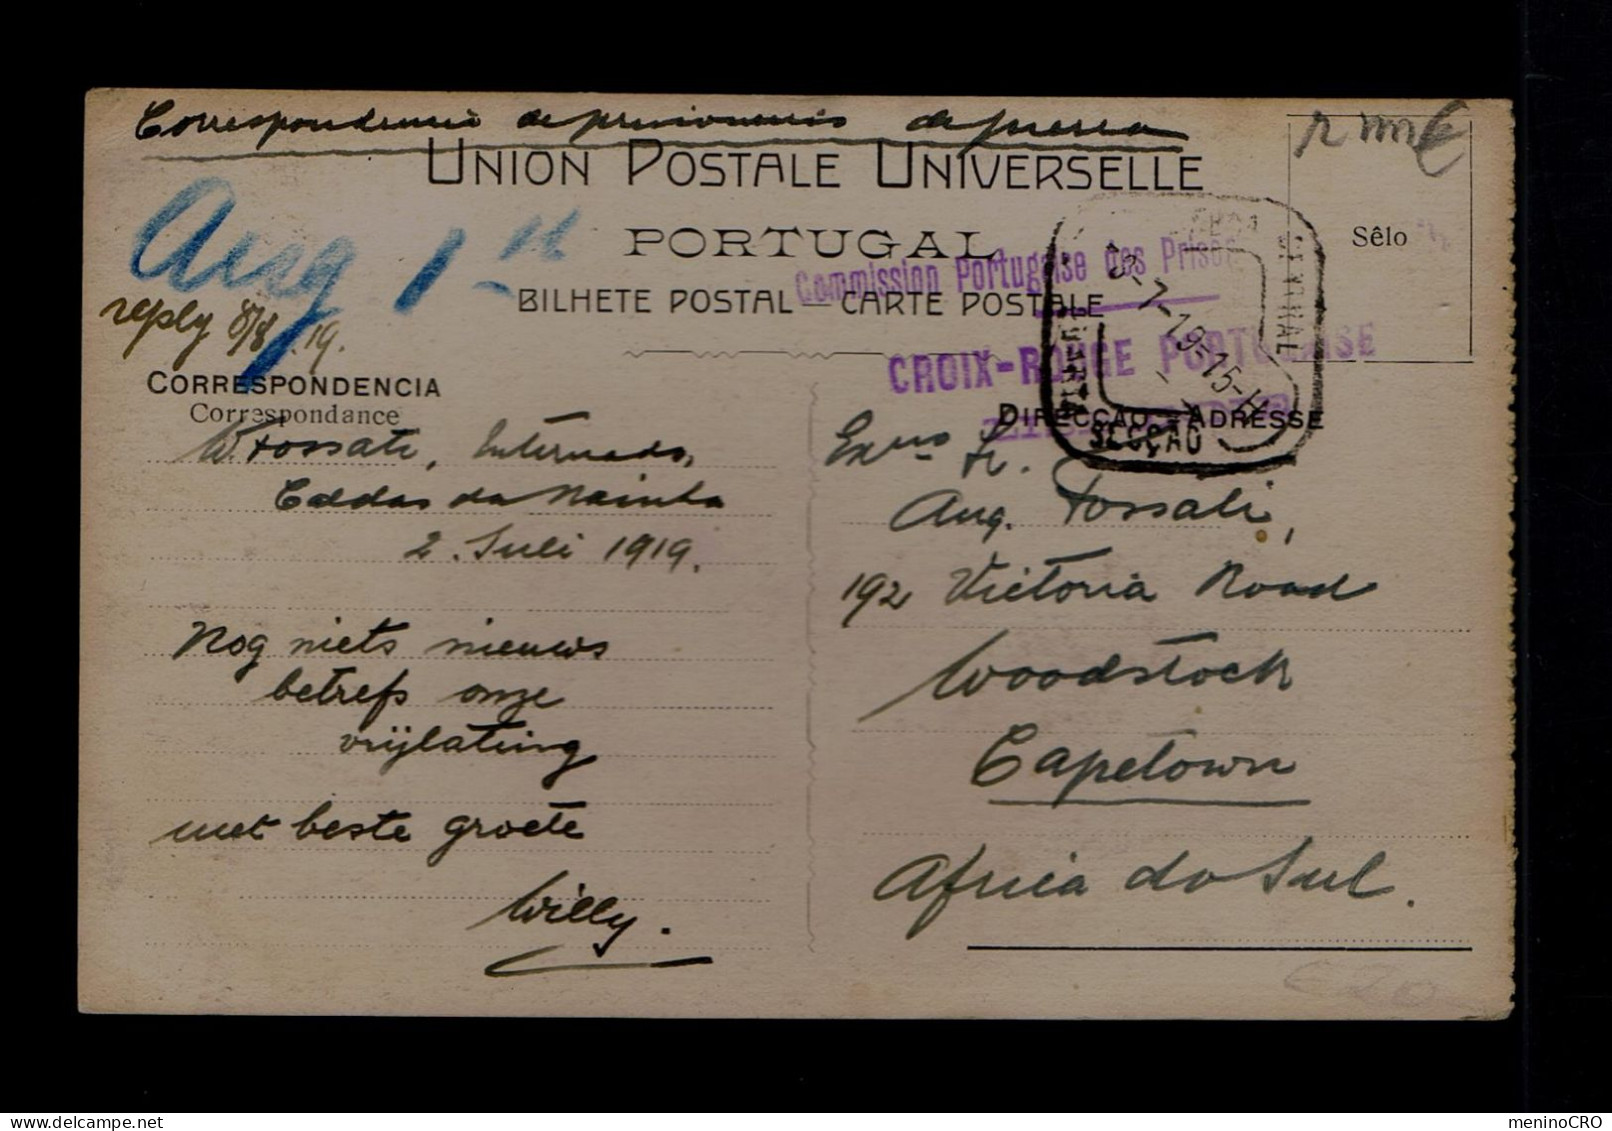 Correspondencia de prisioneiros de guerra
UNION POSTALE UNIVERSELLE
PORTUGAL
BILHETE POSTAL — CARTE POSTALE
Sêlo
Aug 1st
reply 8/8.19.
Commission Portugaise des Prison
CROIX-ROUGE PORTUGAISE
CENTRAL
3-7-19-15-H
QUARTA
SECÇÃO
CORRESPONDENCIA
Correspondance
DIRECÇÃO - ADRESSE
W. Fossati, Internado,
Caldas da Rainha
2. Juli 1919.
Nog niets nieuws
betrefs onze
vrijlating
met beste groete
Willy.
Exmo Sr.
Aug. Fossati,
192 Victoria Road
Woodstock
Capetown
Africa do Sul.
€20
meninoCRO